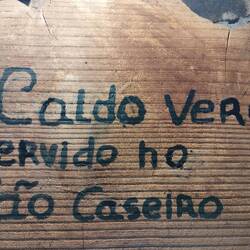 Caldo Ver
ervido no
ão Caseiro